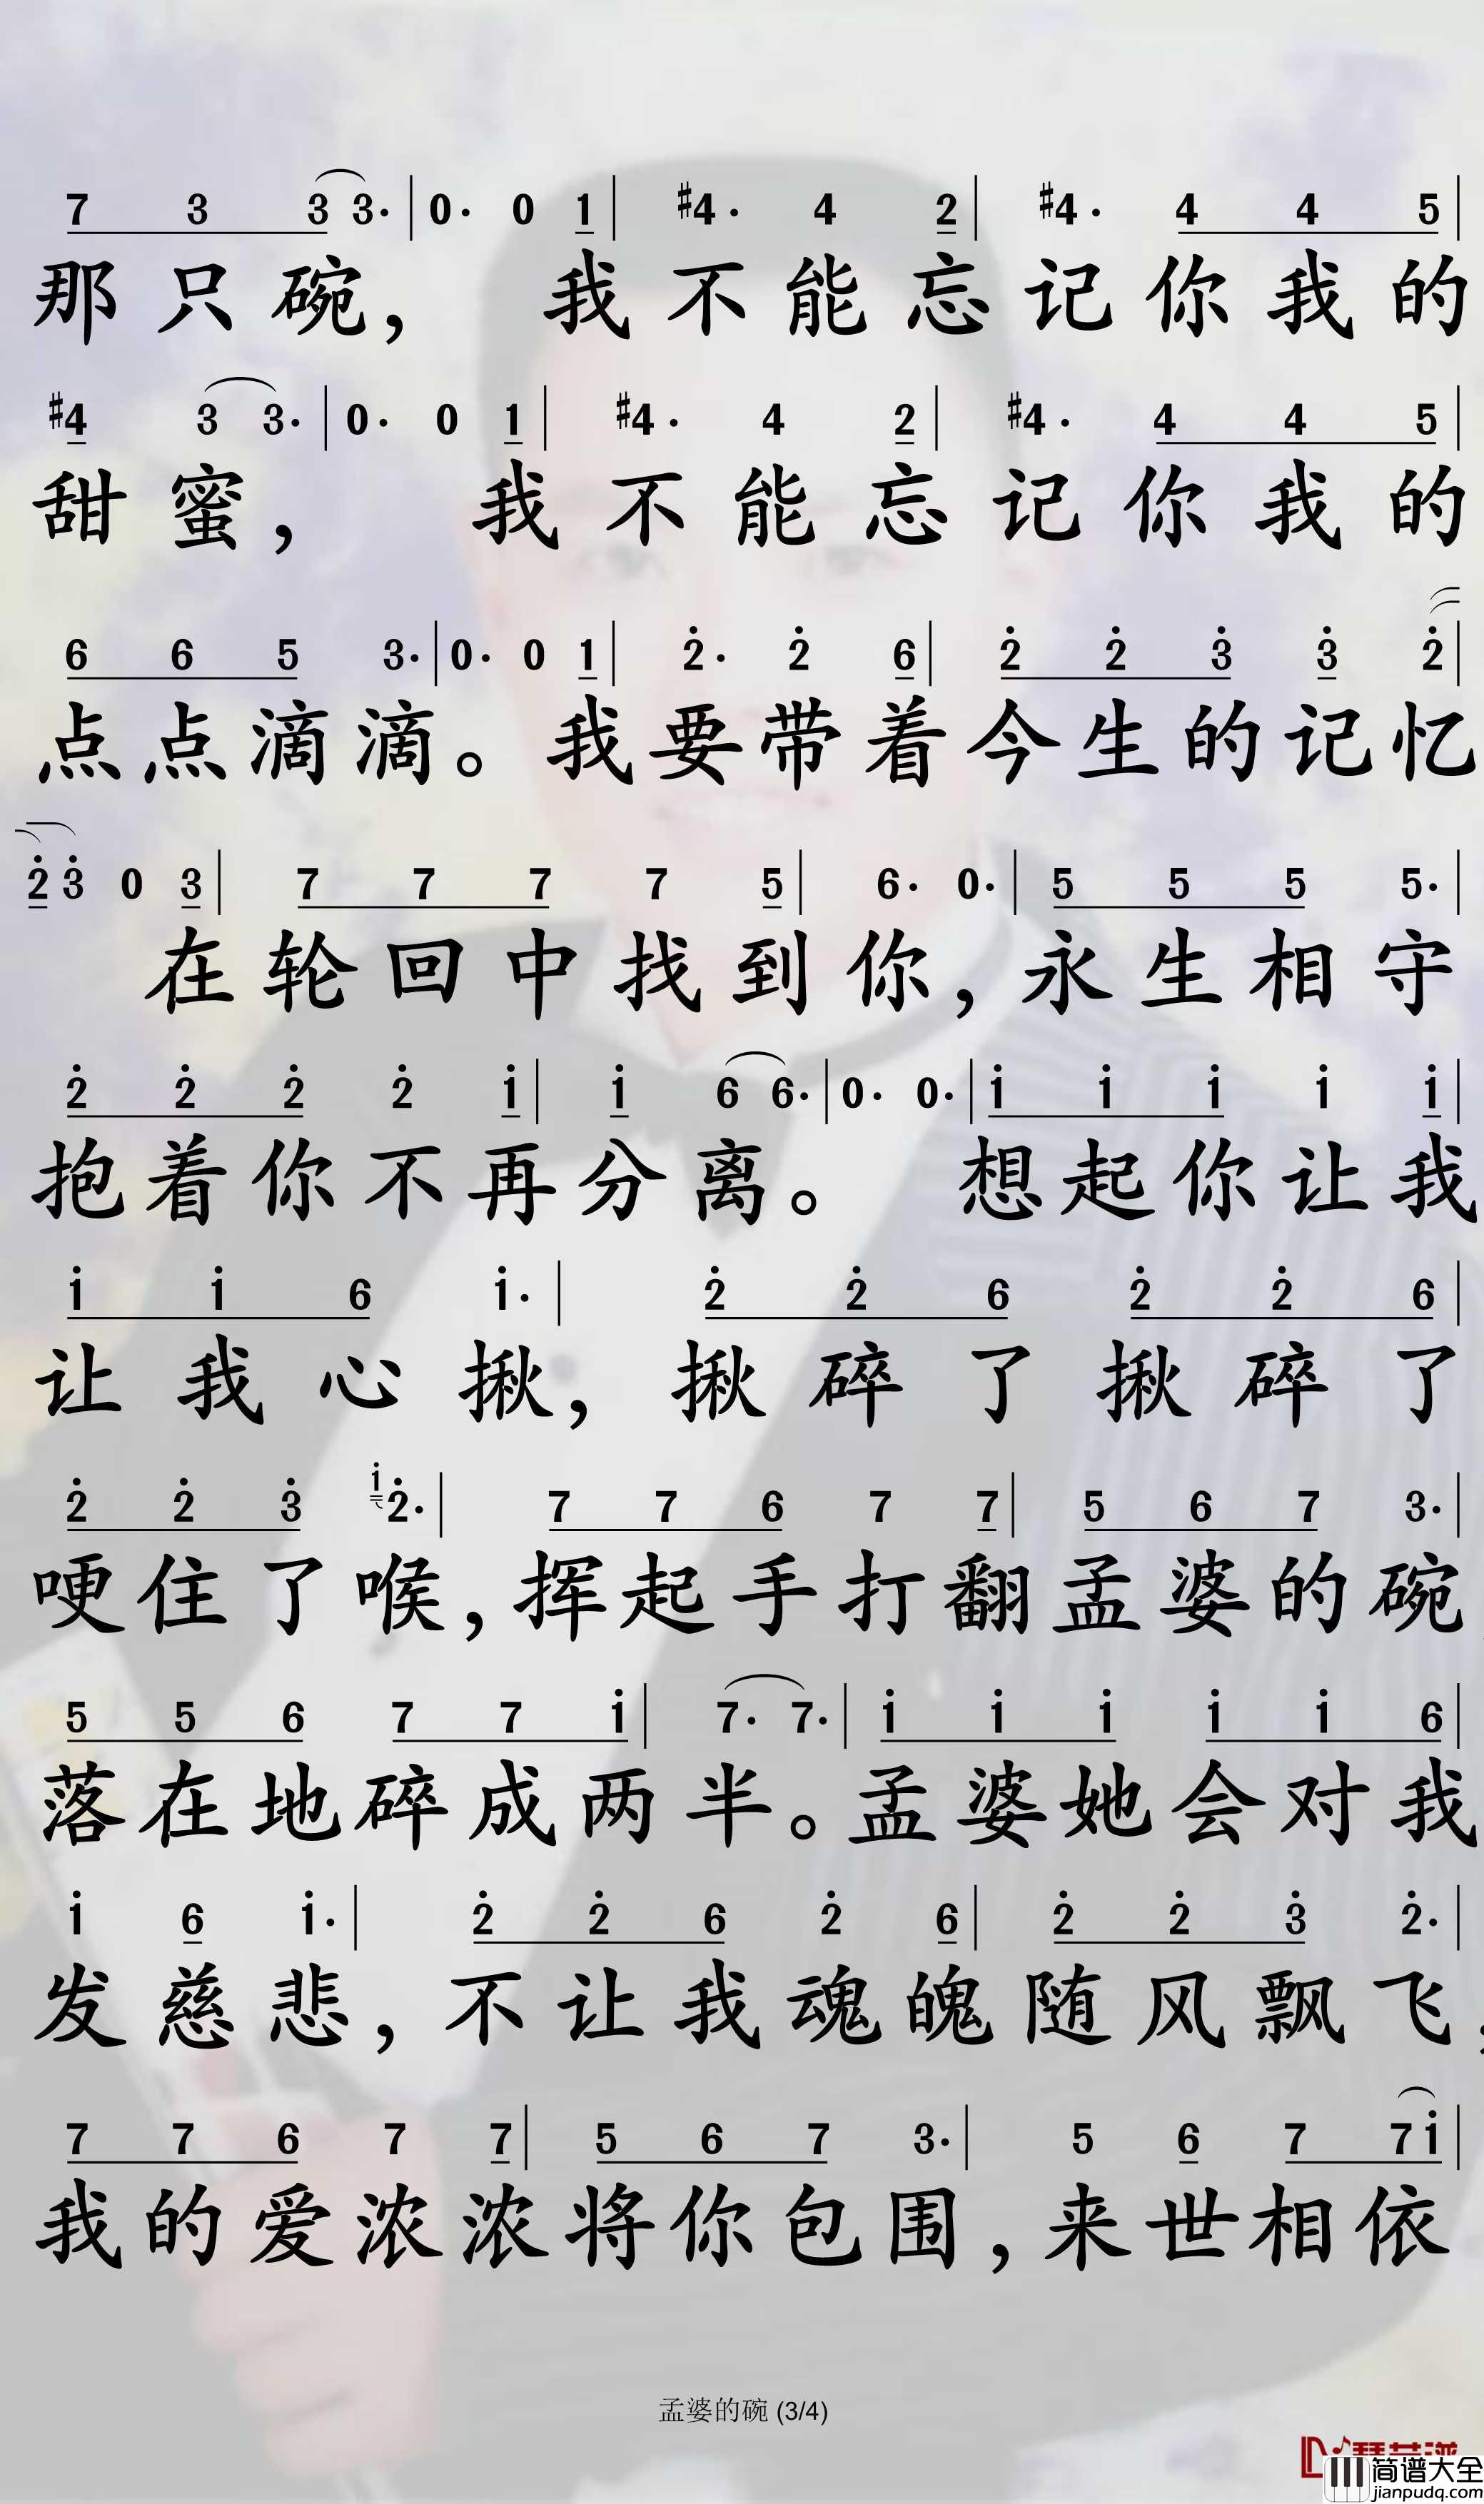 7 3 3 3· | 0· 0 1 | #4· 4 2 | #4· 4 4 5 |
那只碗， 我不能忘记你我的
#4 3 3· | 0· 0 1 | #4· 4 2 | #4· 4 4 5 |
甜蜜， 我不能忘记你我的
6 6 5 3· | 0· 0 1 | 2̇· 2̇ 6 | 2̇ 2̇ 3̇ 3̇ 2̇ |
点点滴滴。我要带着今生的记忆
2̇ 3̇ 0 3 | 7 7 7 7 5 | 6· 0· | 5 5 5 5· |
在轮回中找到你，永生相守
2̇ 2̇ 2̇ 2̇ 1̇ | 1̇ 6 6· | 0· 0· | 1̇ 1̇ 1̇ 1̇ 1̇ |
抱着你不再分离。 想起你让我
1̇ 1̇ 6 1̇· | 2̇ 2̇ 6 2̇ 2̇ 6 |
让我心揪，揪碎了揪碎了
2̇ 2̇ 3̇ 1̇ 2̇· | 7 7 6 7 7 | 5 6 7 3· |
哽住了喉，挥起手打翻孟婆的碗
5 5 6 7 7 1̇ | 7· 7· | 1̇ 1̇ 1̇ 1̇ 1̇ 6 |
落在地碎成两半。孟婆她会对我
1̇ 6 1̇· | 2̇ 2̇ 6 2̇ 6 | 2̇ 2̇ 3̇ 2̇· |
发慈悲，不让我魂魄随风飘飞，
7 7 6 7 7 | 5 6 7 3· | 5 6 7 7 1̇ |
我的爱浓浓将你包围，来世相依
孟婆的碗 (3/4)
简谱大全
jianpudq.com